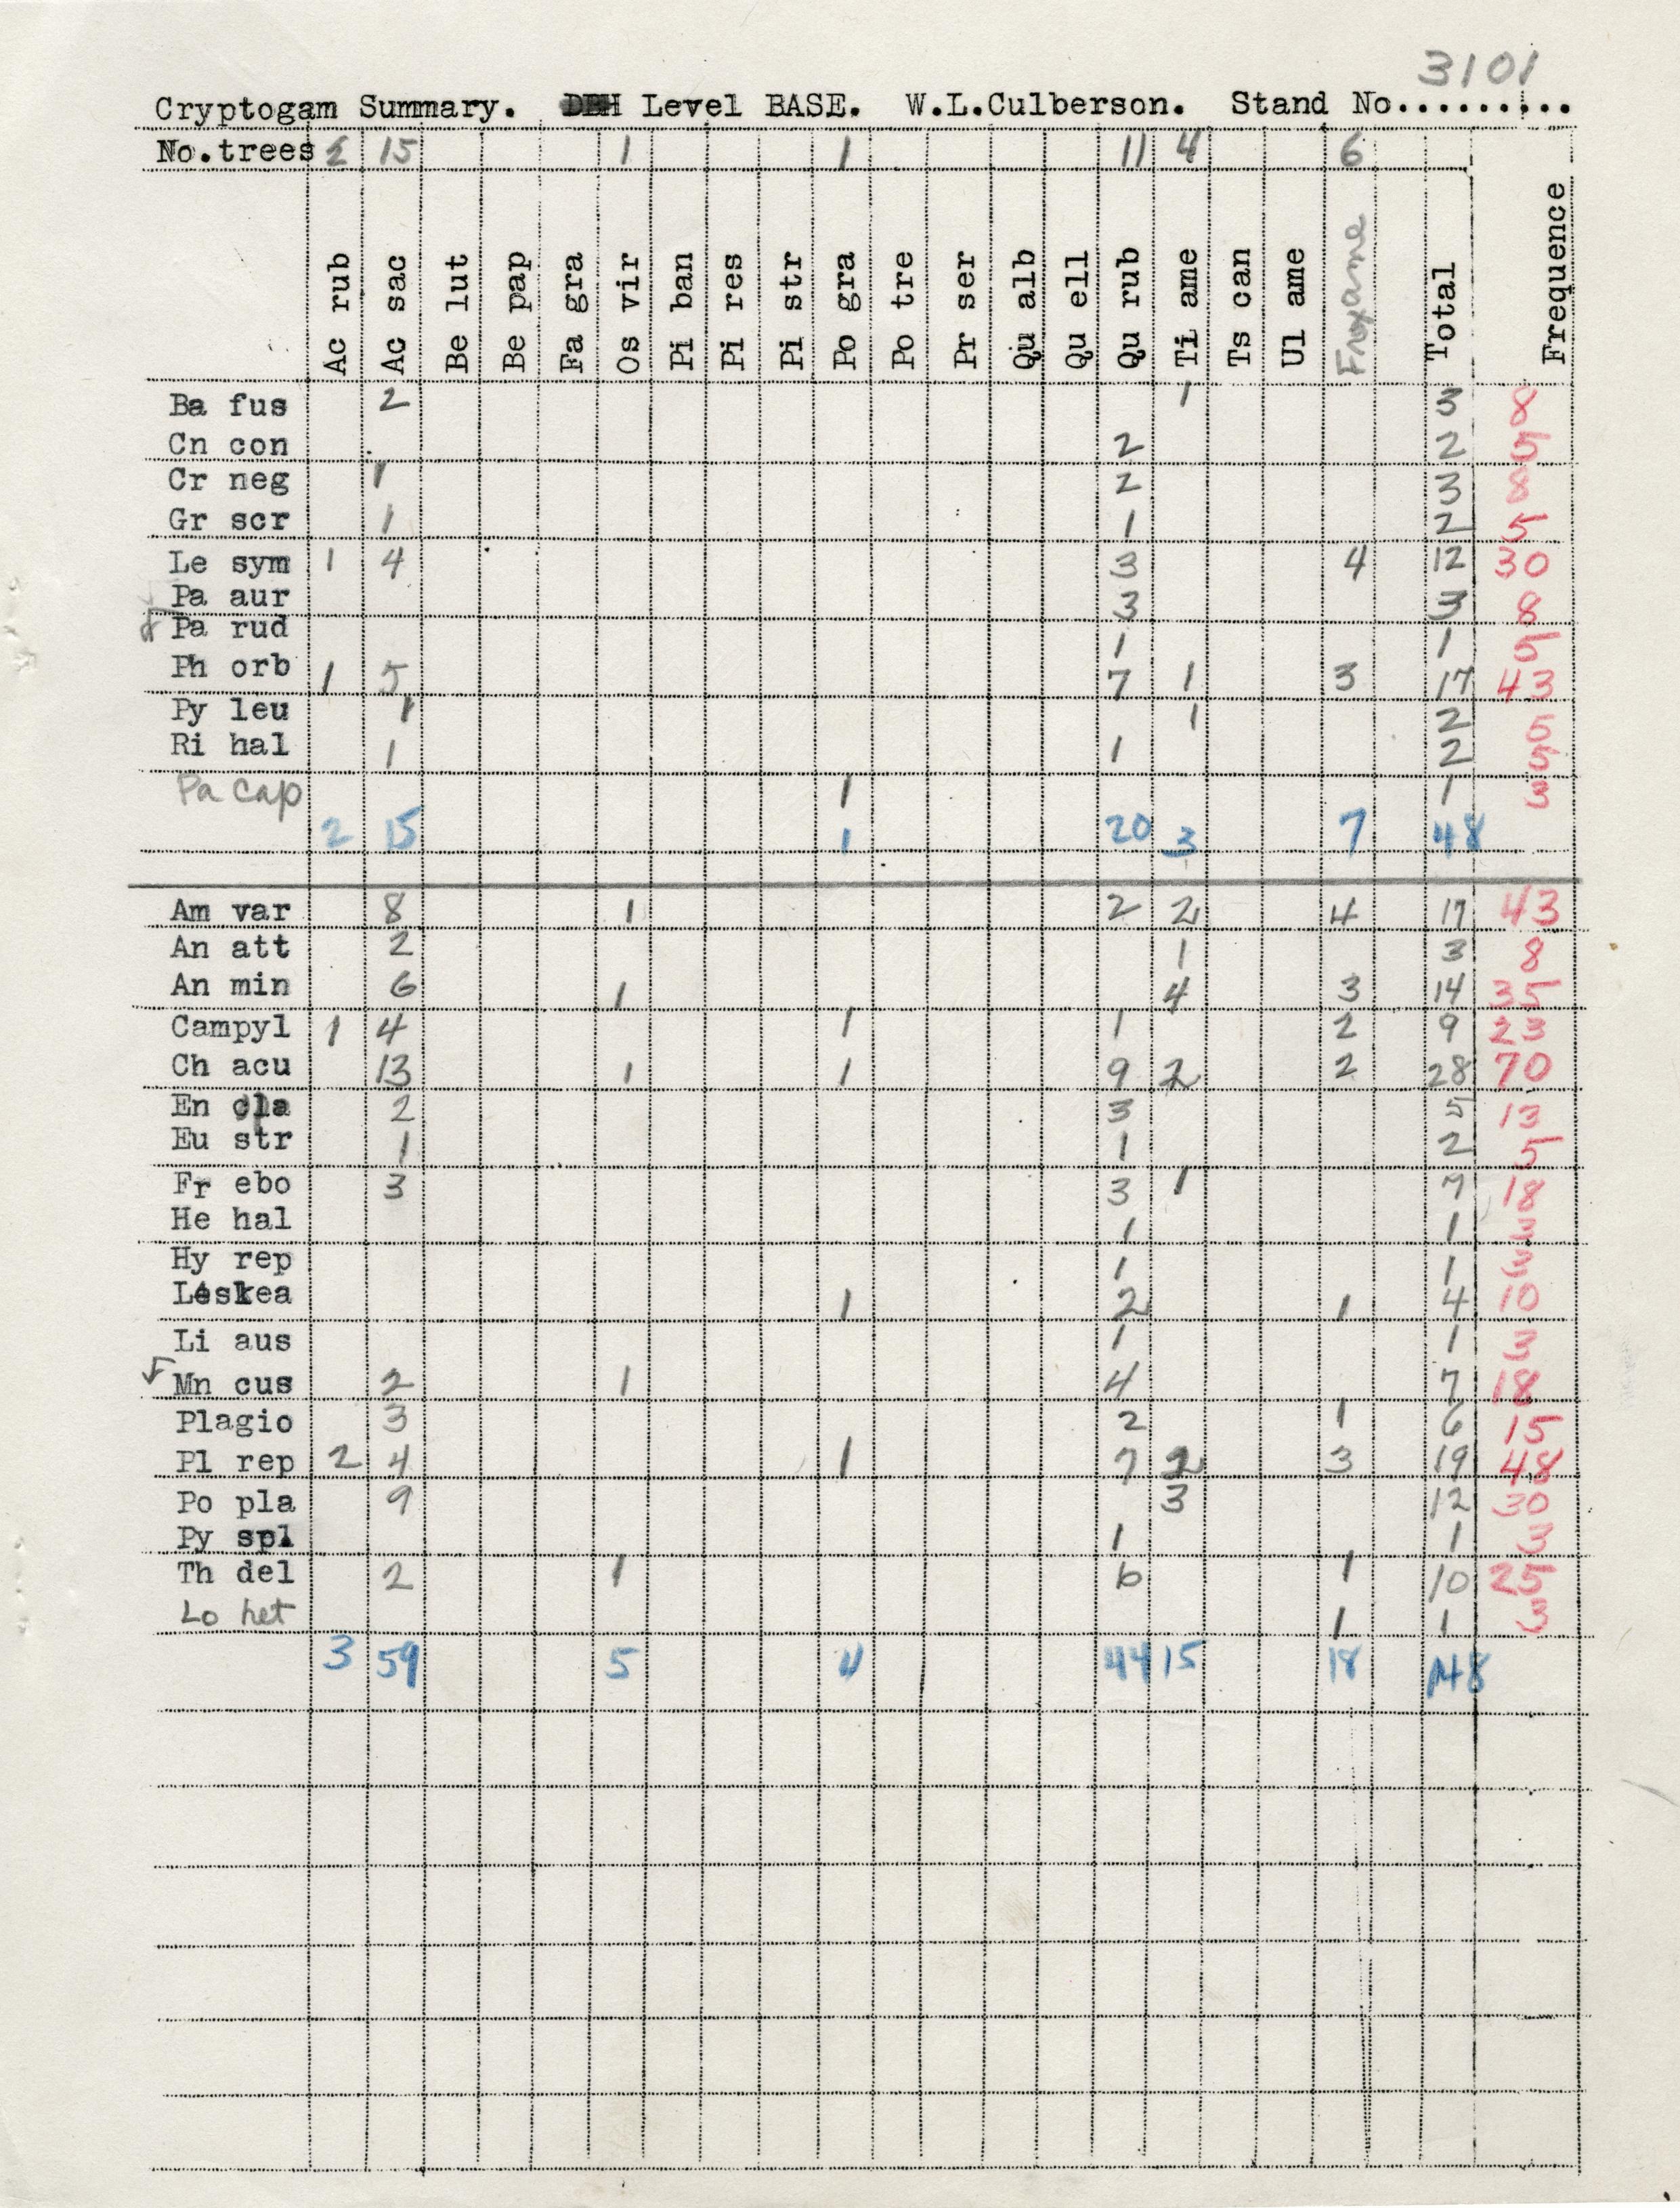 3101
Cryptogam Summary. DBH Level BASE. W.L.Culberson. Stand No..........
No.trees 2 15 1 1 11 4 6
Ac rub Ac sac Be lut Be pap Fa gra Os vir Pi ban Pi res Pi str Po gra Po tre Pr ser Qu alb Qu ell Qu rub Ti ame Ts can Ul ame Frax ame Total Frequence
Ba fus 2 1 3 8
Cn con 2 2 5
Cr neg 1 2 3 8
Gr scr 1 1 2 5
Le sym 1 4 3 4 12 30
Pa aur 3 3 8
Pa rud 1 1 5
Ph orb 1 5 7 1 3 17 43
Py leu 1 1 2 5
Ri hal 1 1 2 5
Pa cap 1 1 3
2 15 1 20 3 7 48
Am var 8 1 2 2 4 17 43
An att 2 1 3 8
An min 6 1 4 3 14 35
Campyl 1 4 1 1 2 9 23
Ch acu 13 1 1 9 2 2 28 70
En cla 2 3 5 13
Eu str 1 1 2 5
Fr ebo 3 3 1 7 18
He hal 1 1 3
Hy rep 1 1 3
Leskea 1 2 1 4 10
Li aus 1 1 3
Mn cus 2 1 4 7 18
Plagio 3 2 1 6 15
Pl rep 2 4 1 7 2 3 19 48
Po pla 9 3 12 30
Py spl 1 1 3
Th del 2 1 6 1 10 25
Lo het 1 1 3
3 59 5 4 44 15 18 148